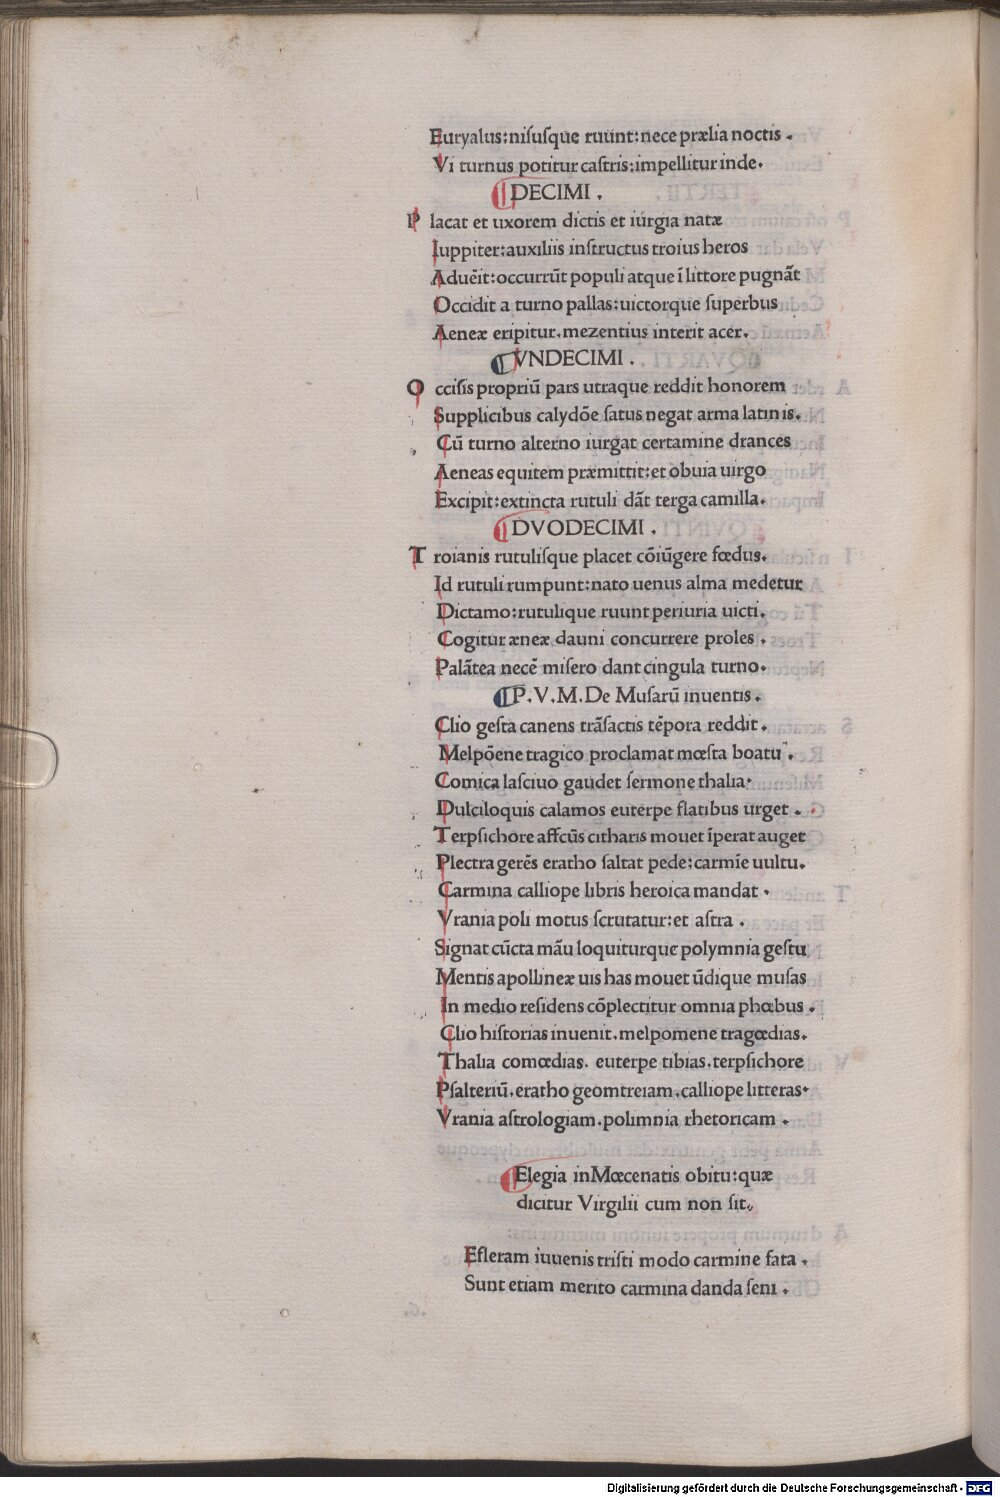 Euryalus:niſuſque ruūnt:nece prælia noctis.
Vi turnus potitur caſtris:impellitur inde.
¶DECIMI.
P lacat et uxorem dictis et iurgia natæ
Iuppiter:auxiliis inſtructus troius heros
Aduēit:occurrūt populi atque ī littore pugnāt
Occidit a turno pallas:uictorque ſuperbus
Aeneæ eripitur.mezentius interit acer.
¶VNDECIMI.
O cciſis propriū pars utraque reddit honorem
Supplicibus calydōe ſatus negat arma latinis.
Cū turno alterno iurgat certamine drances
Aeneas equitem præmittit:et obuia uirgo
Excipit:extincta rutuli dāt terga camilla.
¶DVODECIMI.
T roianis rutuliſque placet cōiūgere fœdus.
Id rutuli rumpunt:nato uenus alma medetur
Dictamo:rutulique ruunt periuria uicti.
Cogitur æneæ dauni concurrere proles.
Palātea necē miſero dant cingula turno.
¶P.V.M.De Muſarū inuentis.
Clio geſta canens trāſactis tēpora reddit.
Melpōene tragico proclamat mœſta boatu.
Comica laſciuo gaudet ſermone thalia.
Dulciloquis calamos euterpe flatibus urget.
Terpſichore affcūs citharis mouet īperat auget
Plectra gerēs eratho ſaltat pede:carmīe uultu.
Carmina calliope libris heroica mandat.
Vrania poli motus ſcrutatur:et aſtra.
Signat cūcta māu loquiturque polymnia geſtu
Mentis apollineæ uis has mouet ūdique muſas
In medio reſidens cōplectitur omnia phœbus.
Clio hiſtorias inuenit.melpomene tragœdias.
Thalia comœdias. euterpe tibias.terpſichore
Pſalteriū.eratho geomtreiam.calliope litteras.
Vrania aſtrologiam.polimnia rhetoricam.
¶Elegia inMœcenatis obitu:quæ
dicitur Virgilii cum non ſit.
Efleram iuuenis triſti modo carmine fata.
Sunt etiam merito carmina danda ſeni.
Digitalisierung gefördert durch die Deutsche Forschungsgemeinschaft - DFG